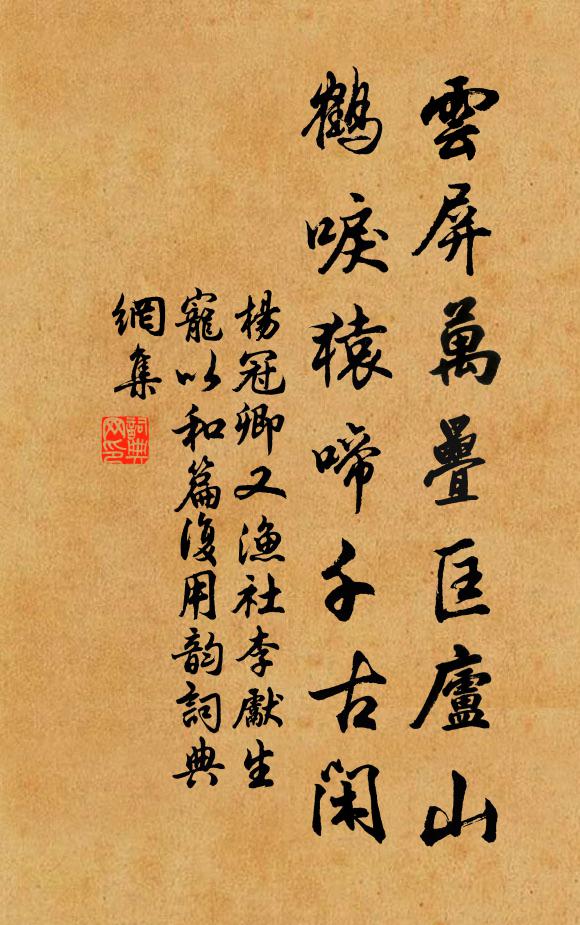 雲屏萬疊匡廬山
鶴唳猿啼千古閑
楊冠卿又漁社李獻生
寵以和篇復用韵詞典
網集
詞典
网印